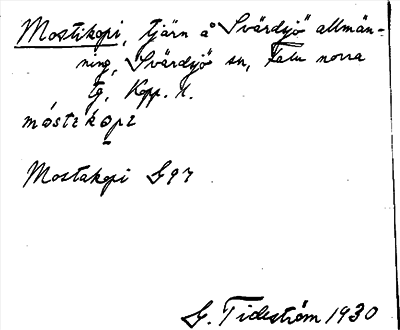 Mostikopi, tjärn å "Svärdsjö" allmän-
ning, Svärdsjö sn, Falu norra
tg, Kopp. l.
móstikòpi
Mostakopi G97
G. Tideström 1930